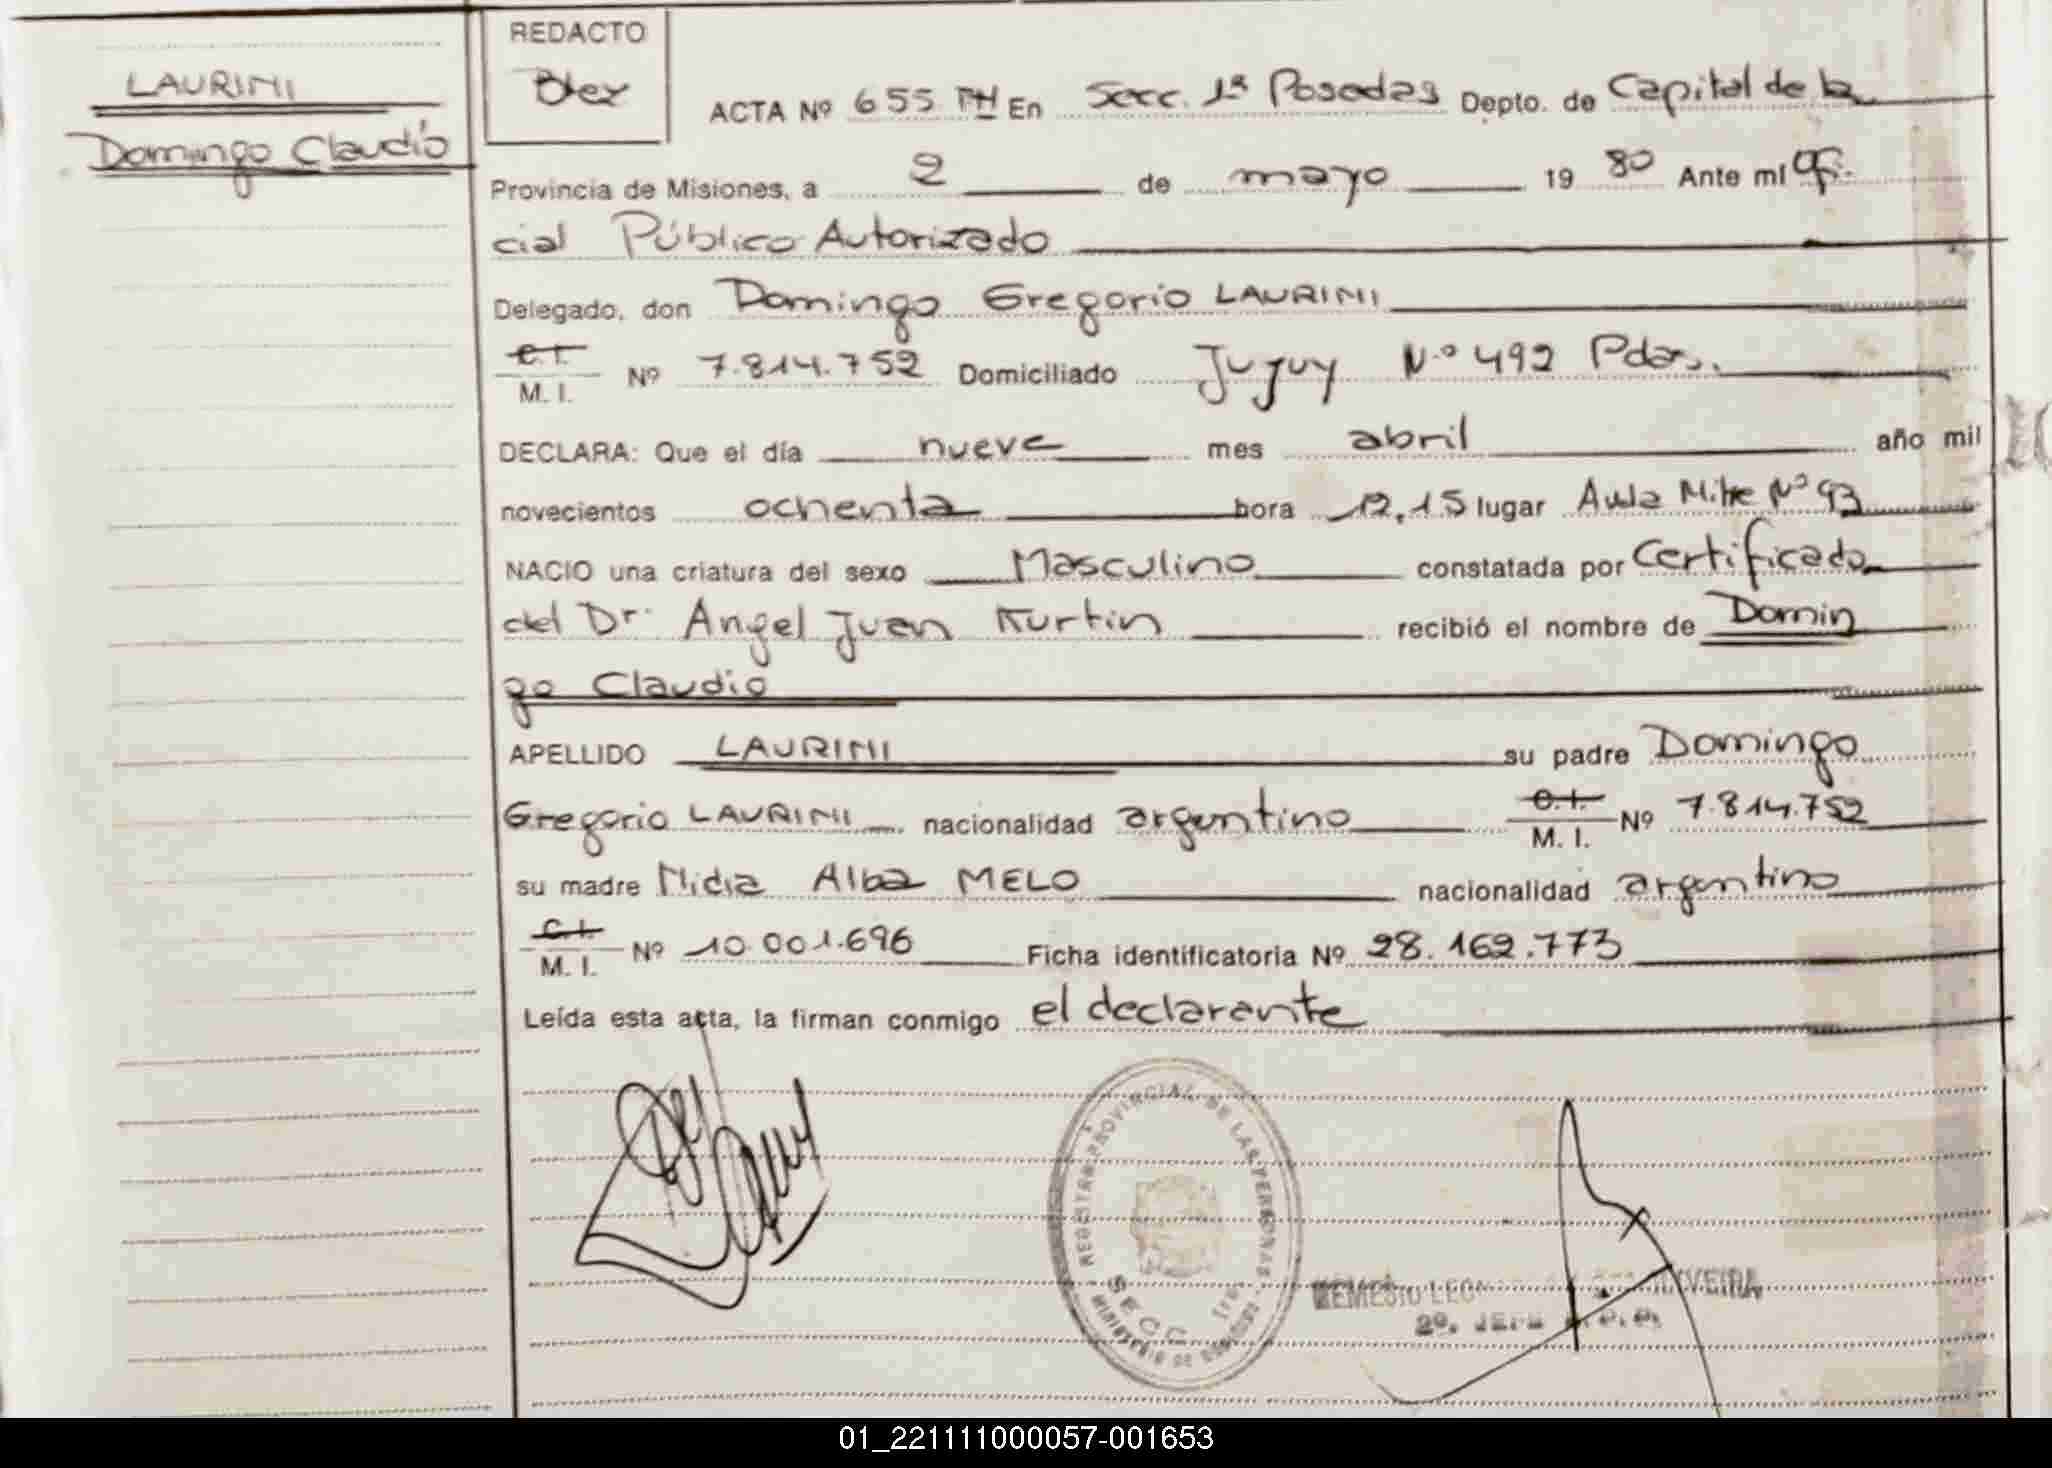 LAURINI
Domingo Claudio
REDACTO
ACTA Nº 655 TH En Secc. 1ª Posadas Depto. de Capital de la
Provincia de Misiones, a 2 de mayo 19 80 Ante mI Ofi-
cial Público Autorizado
Delegado, don Domingo Gregorio LAURINI
C. I.
M. I. Nº 7.814.752 Domiciliado Jujuy N.º 492 Pdas.
DECLARA: Que el día nueve mes abril año mil
novecientos ochenta hora 12,15 lugar Avda Mitre Nº 93
NACIO una criatura del sexo Masculino constatada por Certificado
del Dr. Angel Juan Kurtin recibió el nombre de Domin
go Claudio
APELLIDO LAURINI su padre Domingo
Gregorio LAURINI nacionalidad argentino C. I. M. I. Nº 7.814.752
su madre Nidia Alba MELO nacionalidad argentino
C. I.
M. I. Nº 10.001.696 Ficha identificatoria Nº 28.162.773
Leída esta acta, la firman conmigo el declarante
REGISTRO PROVINCIAL DE LAS PERSONAS
SECC. 1ra
MINISTERIO DE GOBIERNO
NEMESIO LEON OLIVEIRA
2º. JEFE
01_221111000057-001653